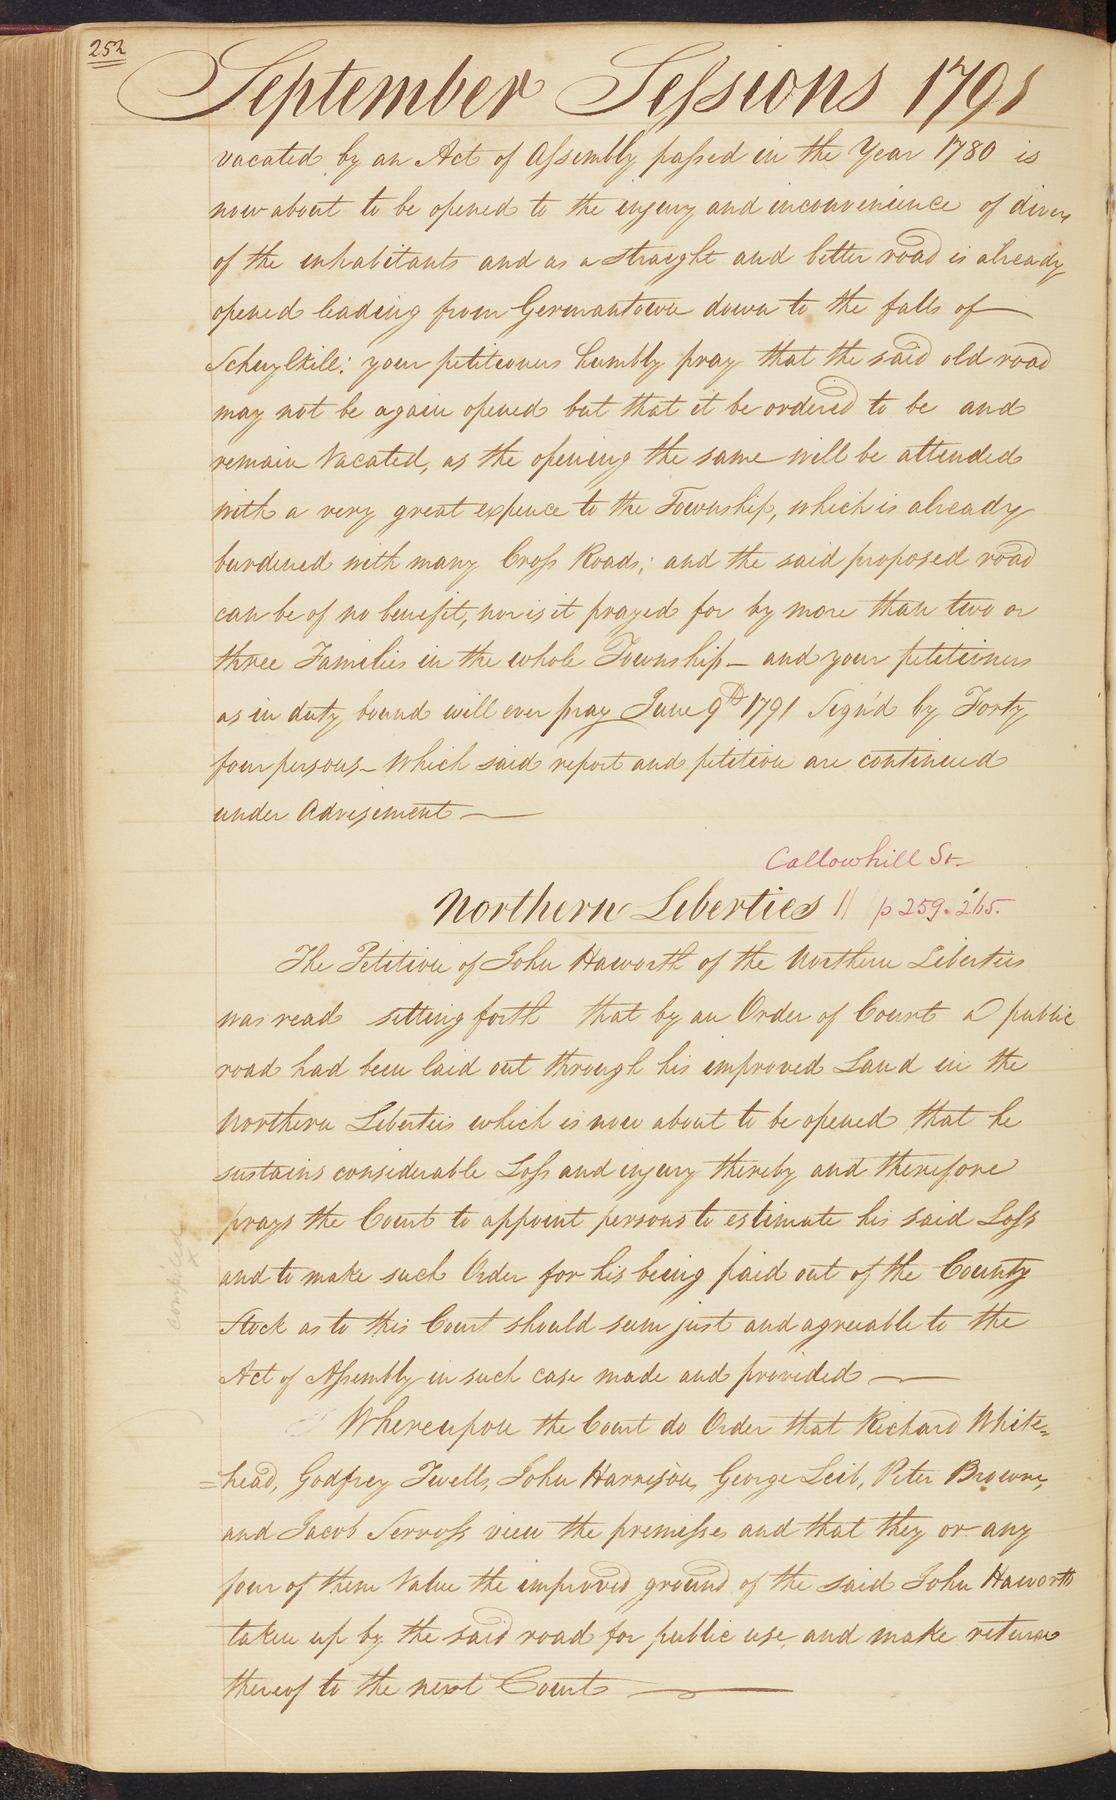 252
September Sessions 1791
vacated by an Act of Assembly passed in the Year 1780 is
now about to be opened to the injury and inconvenience of divers
of the inhabitants and as a straight and better road is already
opened leading from Germantown down to the falls of
Schuylkill: your petitioners humbly pray that the said old road
may not be again opened but that it be ordered to be and
remain Vacated, as the opening the same will be attended
with a very great expence to the Township, which is already
burdened with many Cross Roads; and the said proposed road
can be of no benefit, nor is it prayed for by more than two or
three Families in the whole Township – and your petitioners
as in duty bound will ever pray June 9th 1791 Sign'd by Forty
four persons – Which said report and petition are continued
under Advisement —
Callowhill St
Northern Liberties // p 259. 265.
The Petition of John Haworth of the Northern Liberties
was read setting forth that by an Order of Court a public
road had been laid out through his improved Land in the
Northern Liberties which is now about to be opened that he
sustains considerable Loss and injury thereby and therefore
prays the Court to appoint persons to estimate his said Loss
and to make such Order for his being paid out of the County
Stock as to this Court should seem just and agreeable to the
Act of Assembly in such case made and provided —
compiled
x
Whereupon the Court do Order that Richard White=
=head, Godfrey Twells, John Harrison, George Leib, Peter Browne,
and Jacob Servoss view the premisses and that they or any
four of them Value the improved ground of the said John Haworth
taken up by the said road for public use and make return
thereof to the next Court —